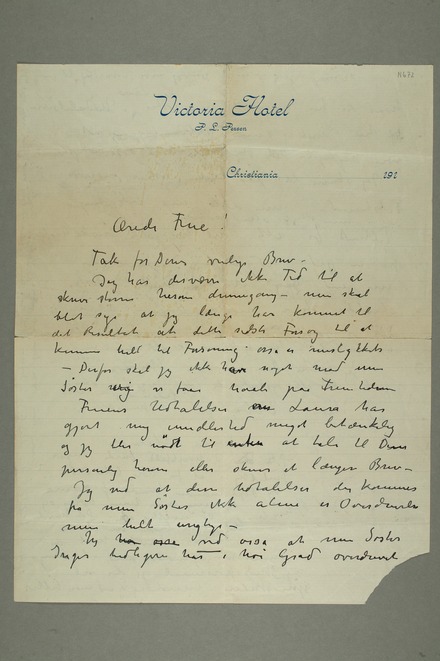 N672
Victoria Hotel
P. L. Person
Christiania 191
Ærede Frue!
Tak for Deres venlige Brev –
Jeg har desværre ikke Tid til at
skrive større herom dennegang – men skal
blot sige at jeg længe har kommet til
det Resultat at dette sidste Forsøg til at
komme helt til Forsoning også er mislykkets
– Derfor skal jeg ikke have noget med min
Søster vi faar haabe paa Fremtiden
Fruens Udtalelser Laura har
gjort mig imidlertid meget betænkelig
og jeg blev nødt til at tale til Dem
personlig herom eller skrive et længere Brev –
Jeg ved at disse Udtalelser der kommer
fra min Søster ikke alene er Overdrevelse
men helt urigtige –
Jeg ved også at min Søster
Inger tidligere har i høi Grad overdrevet